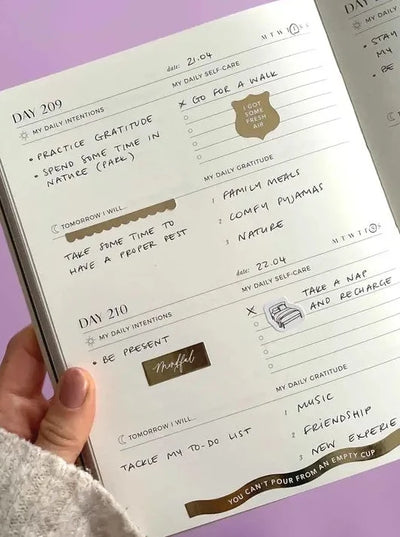 DAY 209
date: 21.04
M T W T F S S
MY DAILY INTENTIONS
• PRACTICE GRATITUDE
• SPEND SOME TIME IN
NATURE (PARK)
MY DAILY SELF-CARE
X GO FOR A WALK
I GOT
SOME
FRESH
AIR
TOMORROW I WILL...
TAKE SOME TIME TO
HAVE A PROPER REST
MY DAILY GRATITUDE
1 FAMILY MEALS
2 COMFY PYJAMAS
3 NATURE
DAY 210
date: 22.04
M T W T F S S
MY DAILY INTENTIONS
• BE PRESENT
Mindful
MY DAILY SELF-CARE
X TAKE A NAP
AND RECHARGE
TOMORROW I WILL...
TACKLE MY TO-DO LIST
MY DAILY GRATITUDE
1 MUSIC
2 FRIENDSHIP
3 NEW EXPERIE
YOU CAN'T POUR FROM AN EMPTY CUP
DAY
MY DAILY
• STAY
MY
• BE